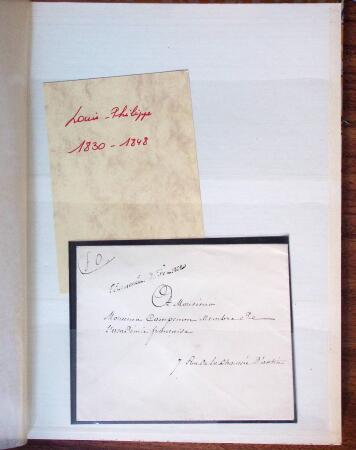 Louis-Philippe
1830-1848
A Monsieur
Monsieur Campenon Membre De
l'académie française
7 Rue de la Chaussée D'antin